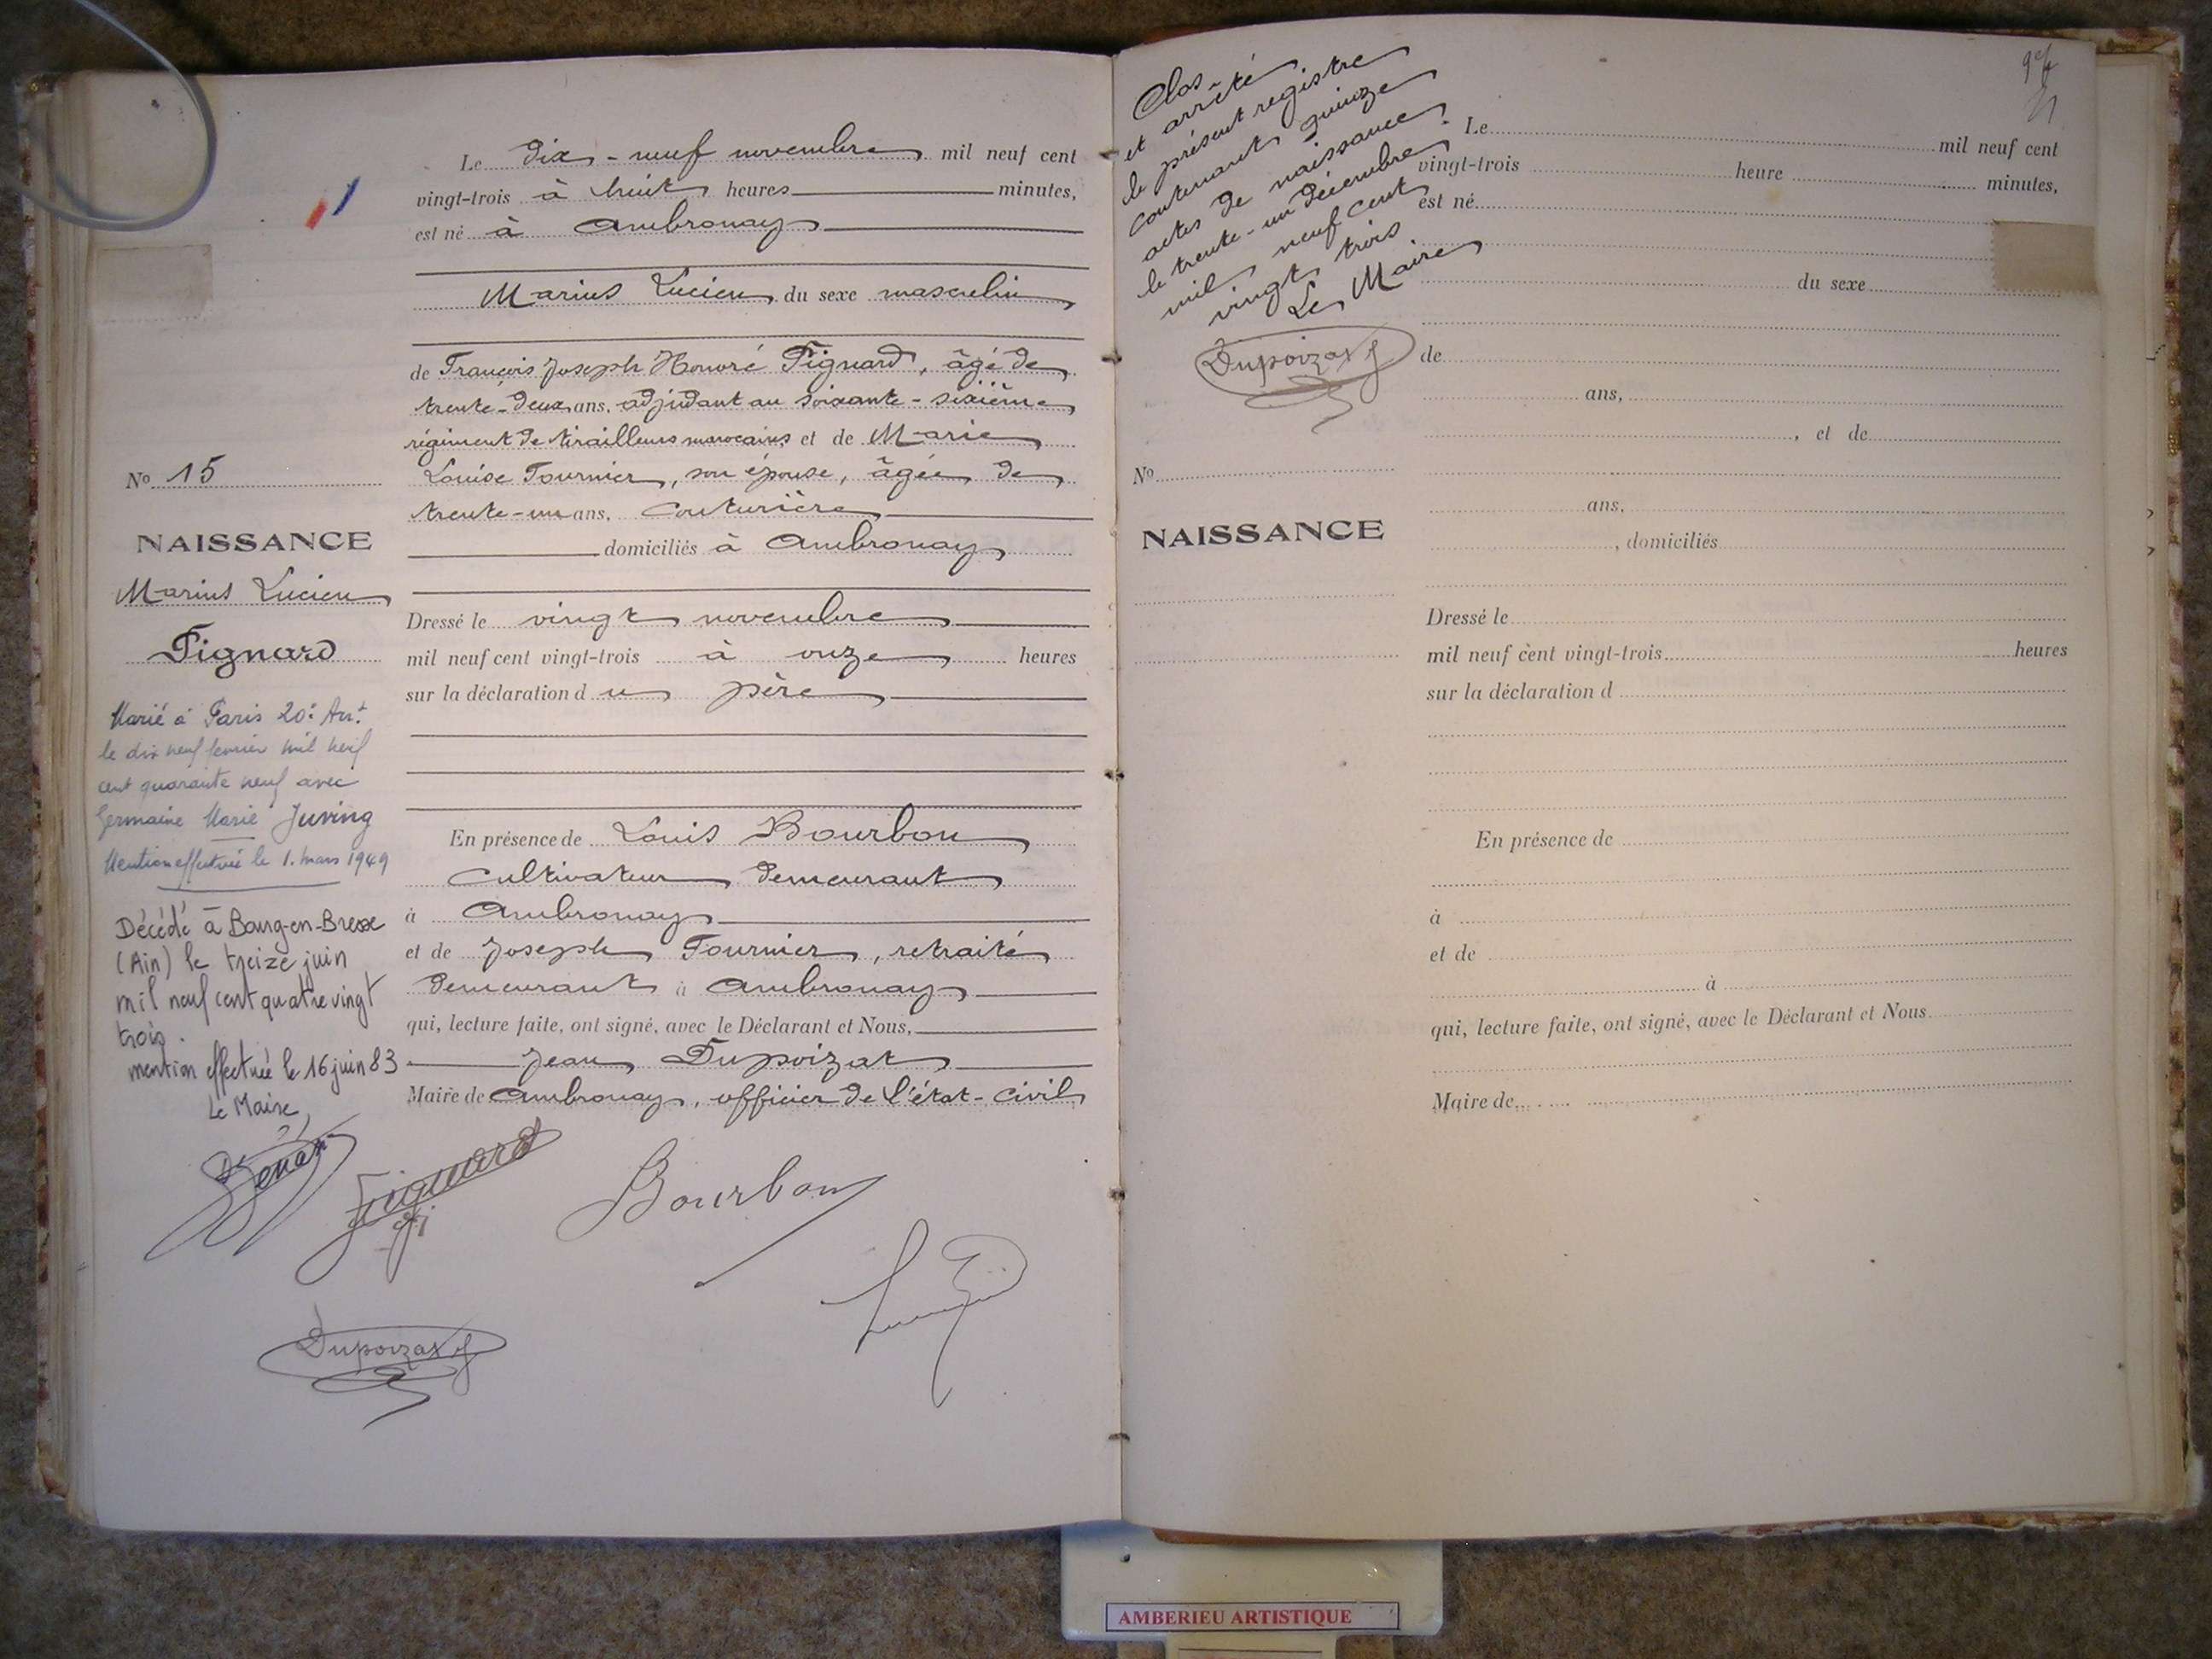 Le dix-neuf novembre mil neuf cent
vingt-trois à huit heures minutes,
est né à Ambronay
Marius Lucien du sexe masculin
de François Joseph Honoré Pignard, âgé de
trente-deux ans, adjudant au soixante-sixième
régiment de tirailleurs marocains et de Marie
Louise Tournier, son épouse, âgée de
trente-un ans, couturière
domiciliés à Ambronay
Dressé le vingt novembre
mil neuf cent vingt-trois à onze heures
sur la déclaration du père
En présence de Louis Bourbon
cultivateur demeurant
à Ambronay
et de Joseph Tournier, retraité
demeurant à Ambronay
qui, lecture faite, ont signé, avec le Déclarant et Nous,
Jean Dupoizat
Maire de Ambronay, officier de l'état-civil
No 15
NAISSANCE
Marius Lucien
Pignard
Marié à Paris 20e Art
le dix neuf février mil neuf
cent quarante neuf avec
Germaine Marie Juving
Mention effectuée le 1. mars 1949
Décédé à Bourg-en-Bresse
(Ain) le treize juin
mil neuf cent quatre vingt
trois.
mention effectuée le 16 juin 83
Le Maire,
Pignard
Bourbon
Dupoizat
Clos
et arrêté
le présent registre
contenant quinze
actes de naissance
le trente-un décembre
mil neuf cent
vingt trois
Le Maire
Dupoizat
Le mil neuf cent
vingt-trois heure minutes,
est né
du sexe
de
ans,
, et de
No
ans,
NAISSANCE
, domiciliés
Dressé le
mil neuf cent vingt-trois heures
sur la déclaration d
En présence de
à
et de
à
qui, lecture faite, ont signé, avec le Déclarant et Nous
Maire de
AMBERIEU ARTISTIQUE